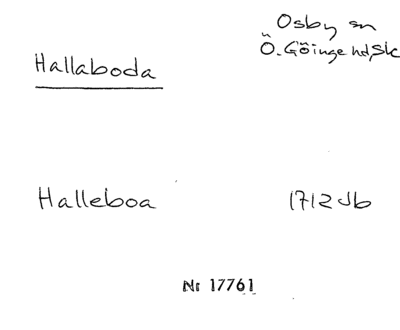 Osby sn
Hallaboda
Ö. Göinge hd, Sk
Halleboa
1712 Jb
Nr 17761